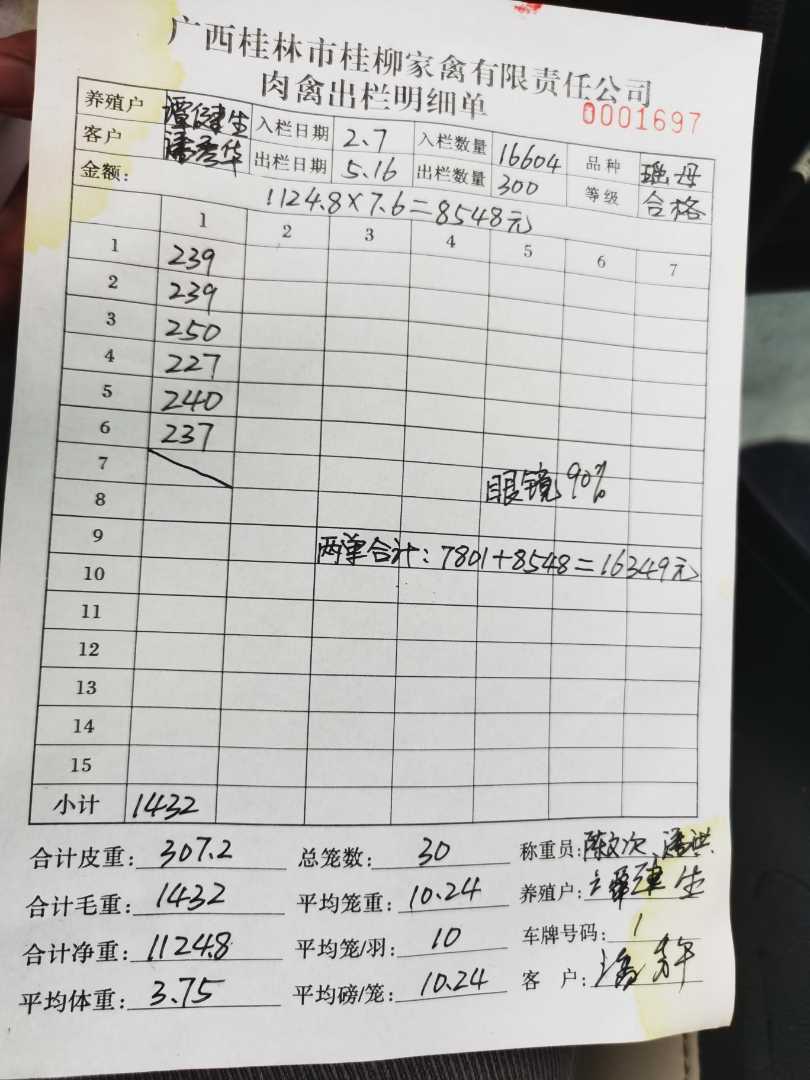 广西桂林市桂柳家禽有限责任公司
肉禽出栏明细单
0001697
养殖户 谭健生 入栏日期 2.7 入栏数量 16604 品种 瑶母
客户 潘秀华 出栏日期 5.16 出栏数量 300 等级 合格
金额: 1124.8×7.6=8548元
1 2 3 4 5 6 7
1 239
2 239
3 250
4 227
5 240
6 237
7
8 眼镜90%
9 两单合计:7801+8548=16349元
10
11
12
13
14
15
小计 1432
合计皮重: 307.2 总笼数: 30 称重员:
合计毛重: 1432 平均笼重: 10.24 养殖户: 谭健生
合计净重: 1124.8 平均笼/羽: 10 车牌号码: 1
平均体重: 3.75 平均磅/笼: 10.24 客户: